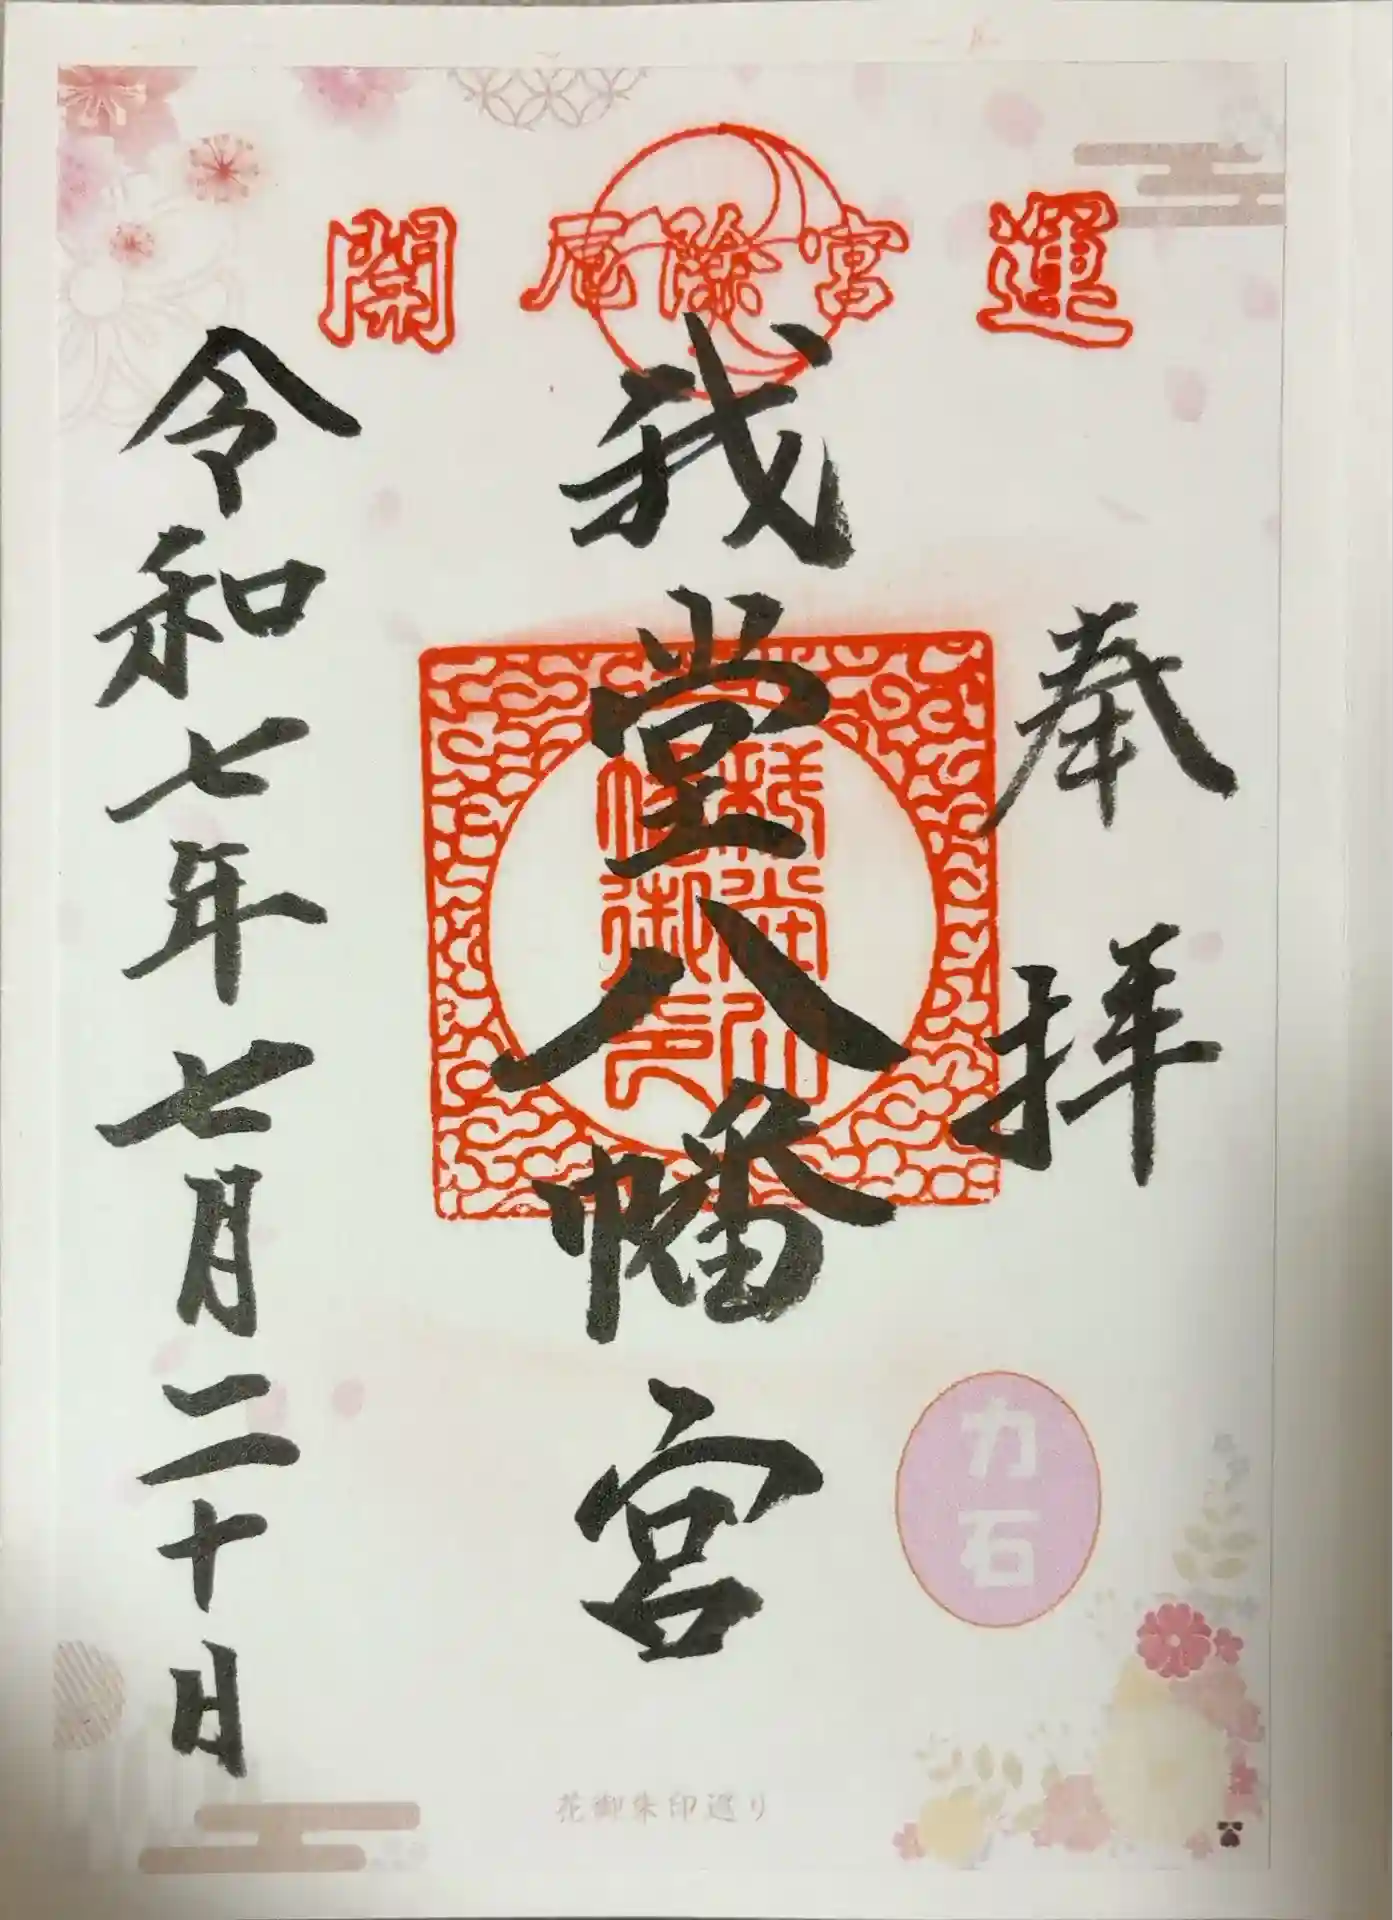 開厄除宮運
奉拝
我堂八幡宮
令和七年七月二十日
力石
花御朱印巡り